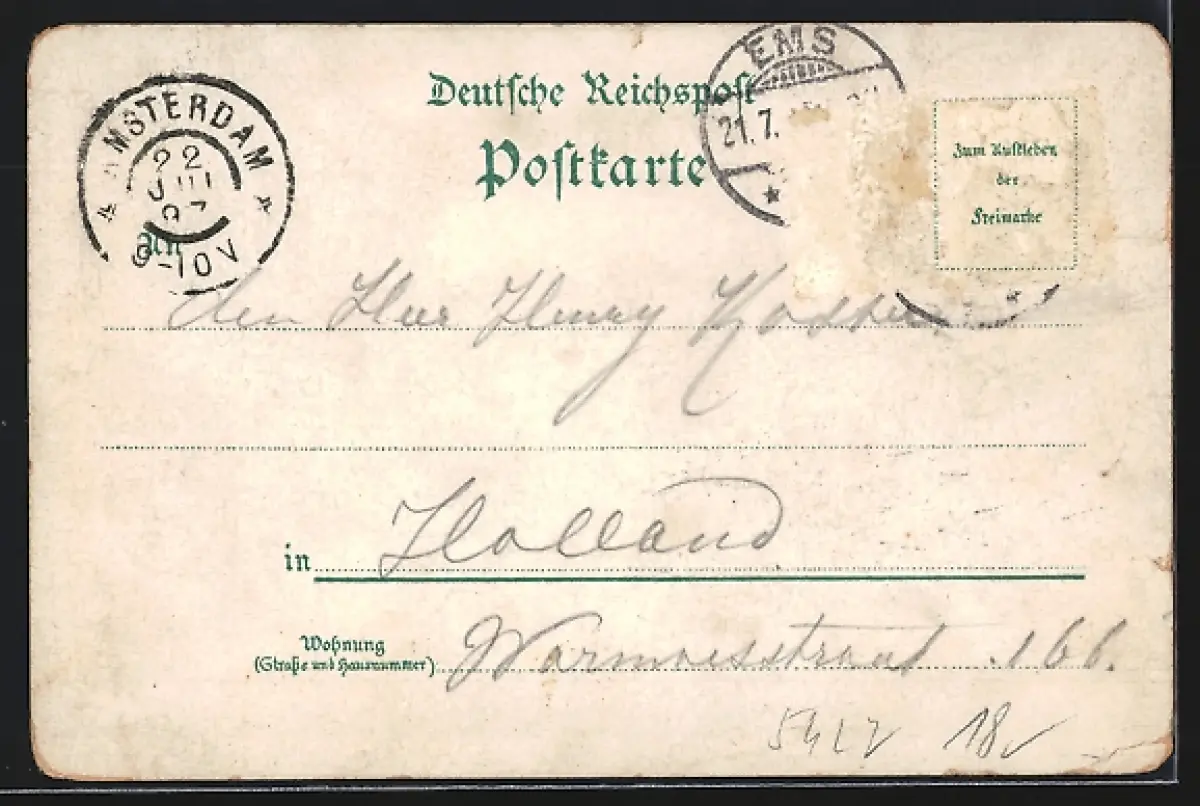 AMSTERDAM
22
JUI
97
9-10V
EMS
21.7.
Deutsche Reichspost
Postkarte
Zum Aufkleben
der
Freimarke
An
den Herr Henry
in Holland
Wohnung
(Straße und Hausnummer) Warmoesstraat 166.
18